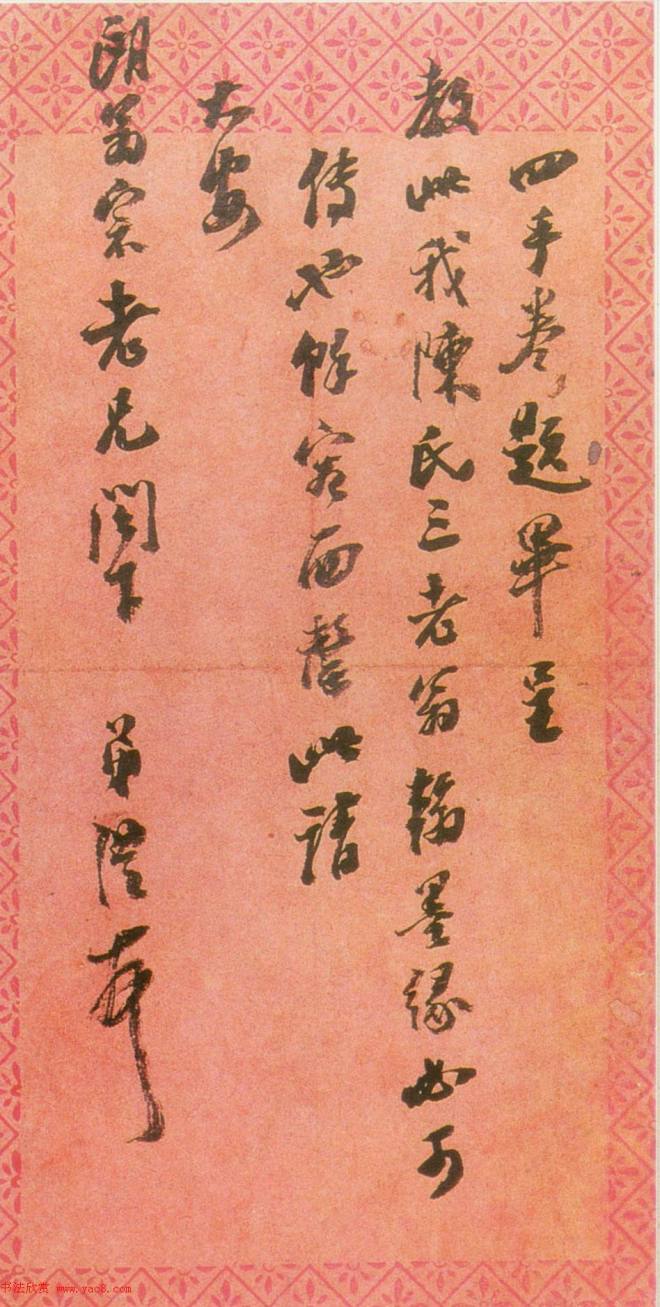 四手卷題畢呈
教此我陳氏三老翁翰墨緣必可
傳也餘容面罄此請
大安
朗翁宗老兄閣下 弟澧頓
书法欣赏 www.yac8.com